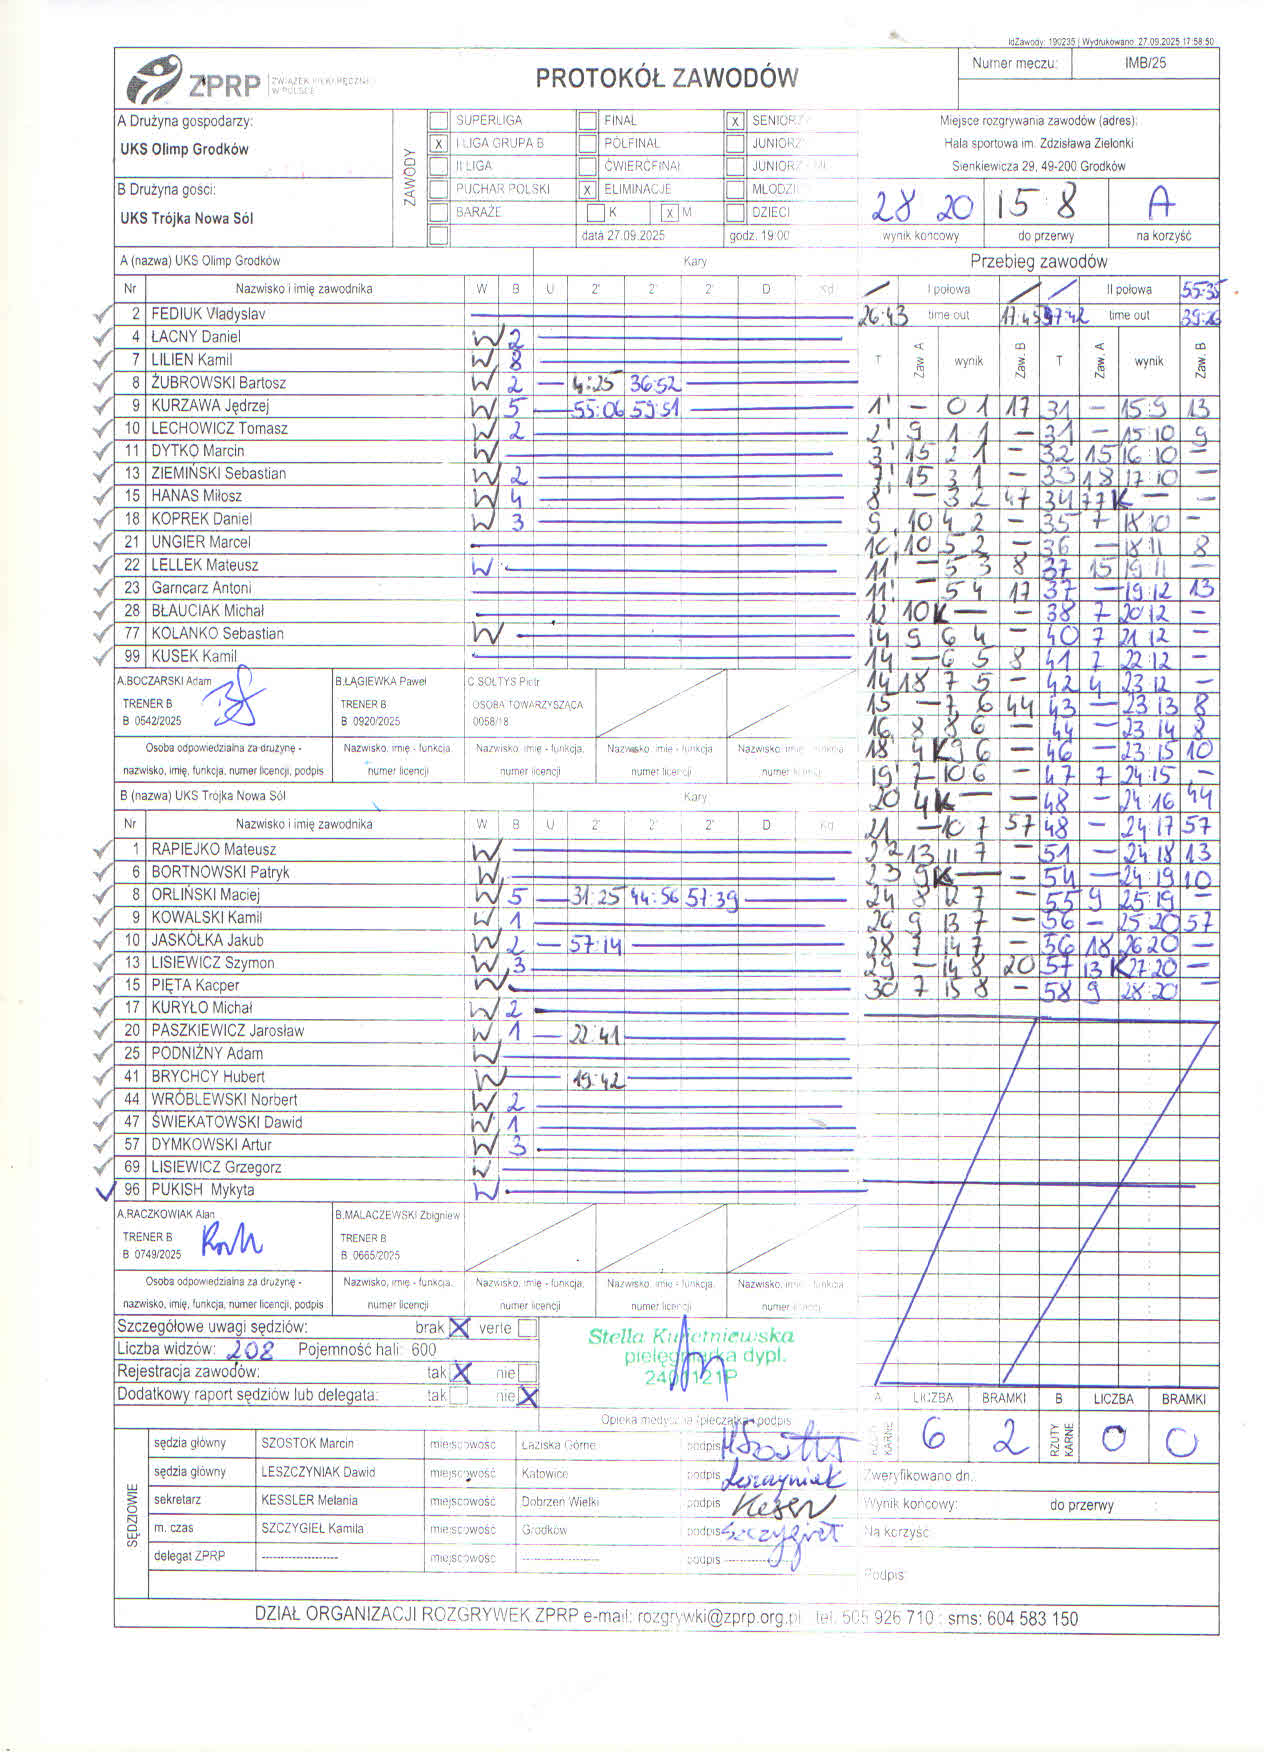 IdZawody: 190235 | Wydrukowano 27.09.2025 17:58:50
ZPRP ZWIĄZEK PIŁKI RĘCZNEJ W POLSCE
PROTOKÓŁ ZAWODÓW
Numer meczu: IMB/25
A Drużyna gospodarzy:
UKS Olimp Grodków
B Drużyna gości:
UKS Trójka Nowa Sól
ZAWODY
SUPERLIGA FINAŁ X SENIORZ
X I LIGA GRUPA B PÓŁFINAŁ JUNIORZ
II LIGA ĆWIERĆFINAŁ JUNIORZ
PUCHAR POLSKI X ELIMINACJE MŁODZI
BARAŻE K X M DZIECI
data 27.09.2025 godz. 19:00
Miejsce rozgrywania zawodów (adres):
Hala sportowa im. Zdzisława Zielonki
Sienkiewicza 29, 49-200 Grodków
28 20 15 8 A
wynik końcowy do przerwy na korzyść
A (nazwa) UKS Olimp Grodków Kary
Nr Nazwisko i imię zawodnika W B U 2' 2' 2' D Kd
2 FEDIUK Vladyslav
4 ŁACNY Daniel W 2
7 LILIEN Kamil W 8
8 ŻUBROWSKI Bartosz W 2 4:25 36:52
9 KURZAWA Jędrzej W 5 55:06 59:51
10 LECHOWICZ Tomasz W 2
11 DYTKO Marcin W
13 ZIEMIŃSKI Sebastian W 2
15 HANAS Miłosz W 4
18 KOPREK Daniel W 3
21 UNGIER Marcel
22 LELLEK Mateusz W
23 Garncarz Antoni
28 BŁAUCIAK Michał
77 KOLANKO Sebastian W
99 KUSEK Kamil
A.BOCZARSKI Adam B.ŁĄGIEWKA Paweł C.SOŁTYS Piotr
TRENER B TRENER B OSOBA TOWARZYSZĄCA
B 0542/2025 B 0920/2025 0058/18
Osoba odpowiedzialna za drużynę - Nazwisko, imię - funkcja, Nazwisko, imię - funkcja, Nazwisko, imię - funkcja Nazwisko, imię - funkcja
nazwisko, imię, funkcja, numer licencji, podpis numer licencji numer licencji numer licencji numer licencji
B (nazwa) UKS Trójka Nowa Sól Kary
Nr Nazwisko i imię zawodnika W B U 2' 2' 2' D Kd
1 RAPIEJKO Mateusz W
6 BORTNOWSKI Patryk W
8 ORLIŃSKI Maciej W 5 31:25 44:56 57:39
9 KOWALSKI Kamil W 1
10 JASKÓŁKA Jakub W 2 57:14
13 LISIEWICZ Szymon W 3
15 PIĘTA Kacper W
17 KURYŁO Michał W 2
20 PASZKIEWICZ Jarosław W 1 22:41
25 PODNIŻNY Adam W
41 BRYCHCY Hubert W 19:42
44 WRÓBLEWSKI Norbert W 2
47 ŚWIEKATOWSKI Dawid W 1
57 DYMKOWSKI Artur W 3
69 LISIEWICZ Grzegorz W
96 PUKISH Mykyta W
A.RACZKOWIAK Alan B.MALACZEWSKI Zbigniew
TRENER B TRENER B
B 0749/2025 B 0665/2025
Osoba odpowiedzialna za drużynę - Nazwisko, imię - funkcja, Nazwisko, imię - funkcja, Nazwisko, imię - funkcja, Nazwisko, imię - funkcja
nazwisko, imię, funkcja, numer licencji, podpis numer licencji numer licencji numer licencji numer licencji
Przebieg zawodów
I połowa II połowa 55:35
26:43 time out 17:45 37:42 time out 39:26
T Zaw. A wynik Zaw. B T Zaw. A wynik Zaw. B
1' - 0 1 17 31 - 15:9 13
2' 9 1 1 - 31 - 15 10 9
3' 15 2 1 - 32 15 16 10 -
7' 15 3 1 - 33 18 17 10 -
8' - 3 2 47 34 77 K - -
9 10 4 2 - 35 7 18 10 -
10 10 5 2 - 36 - 18 11 8
11' - 5 3 8 37 15 19 11 -
11' - 5 4 17 37 - 19:12 13
12 10 K - - 38 7 20 12 -
14 9 6 4 - 40 7 21 12 -
14 - 6 5 8 41 7 22 12 -
14 18 7 5 - 42 4 23 12 -
15 - 7 6 44 43 - 23 13 8
16 8 8 6 - 44 - 23 14 8
18' 4 K 9 6 - 46 - 23:15 10
19' 7 10 6 - 47 7 24:15 -
20 4 K - - 48 - 24 16 44
21 - 10 7 57 48 - 24 17 57
22 13 11 7 - 51 - 24 18 13
23 9 K - - 54 - 24 19 10
24 8 12 7 - 55 9 25:19 -
26 9 13 7 - 56 - 25 20 57
28 7 14 7 - 56 18 26 20 -
29 - 14 8 20 57 13 K 27:20 -
30 7 15 8 - 58 9 28:20 -
Szczegółowe uwagi sędziów: brak X verte
Liczba widzów: 208 Pojemność hali: 600
Rejestracja zawodów: tak X nie
Dodatkowy raport sędziów lub delegata: tak nie X
pielęgniarka dypl.
Opieka medyczna (pieczątka+podpis
A LICZBA BRAMKI B LICZBA BRAMKI
RZUTY KARNE 6 2 RZUTY KARNE 0 0
SĘDZIOWIE
sędzia główny SZOSTOK Marcin miejscowość Łaziska Górne podpis
sędzia główny LESZCZYNIAK Dawid miejscowość Katowice podpis Leszczyniak
sekretarz KESSLER Melania miejscowość Dobrzeń Wielki podpis
m. czas SZCZYGIEŁ Kamila miejscowość Grodków podpis Szczygieł
delegat ZPRP -------------------- miejscowość -------------------- podpis --------------------
Zweryfikowano dn.:
Wynik końcowy: do przerwy :
Na korzyść:
Podpis:
DZIAŁ ORGANIZACJI ROZGRYWEK ZPRP e-mail: rozgrywki@zprp.org.pl tel. 505 926 710 ; sms: 604 583 150